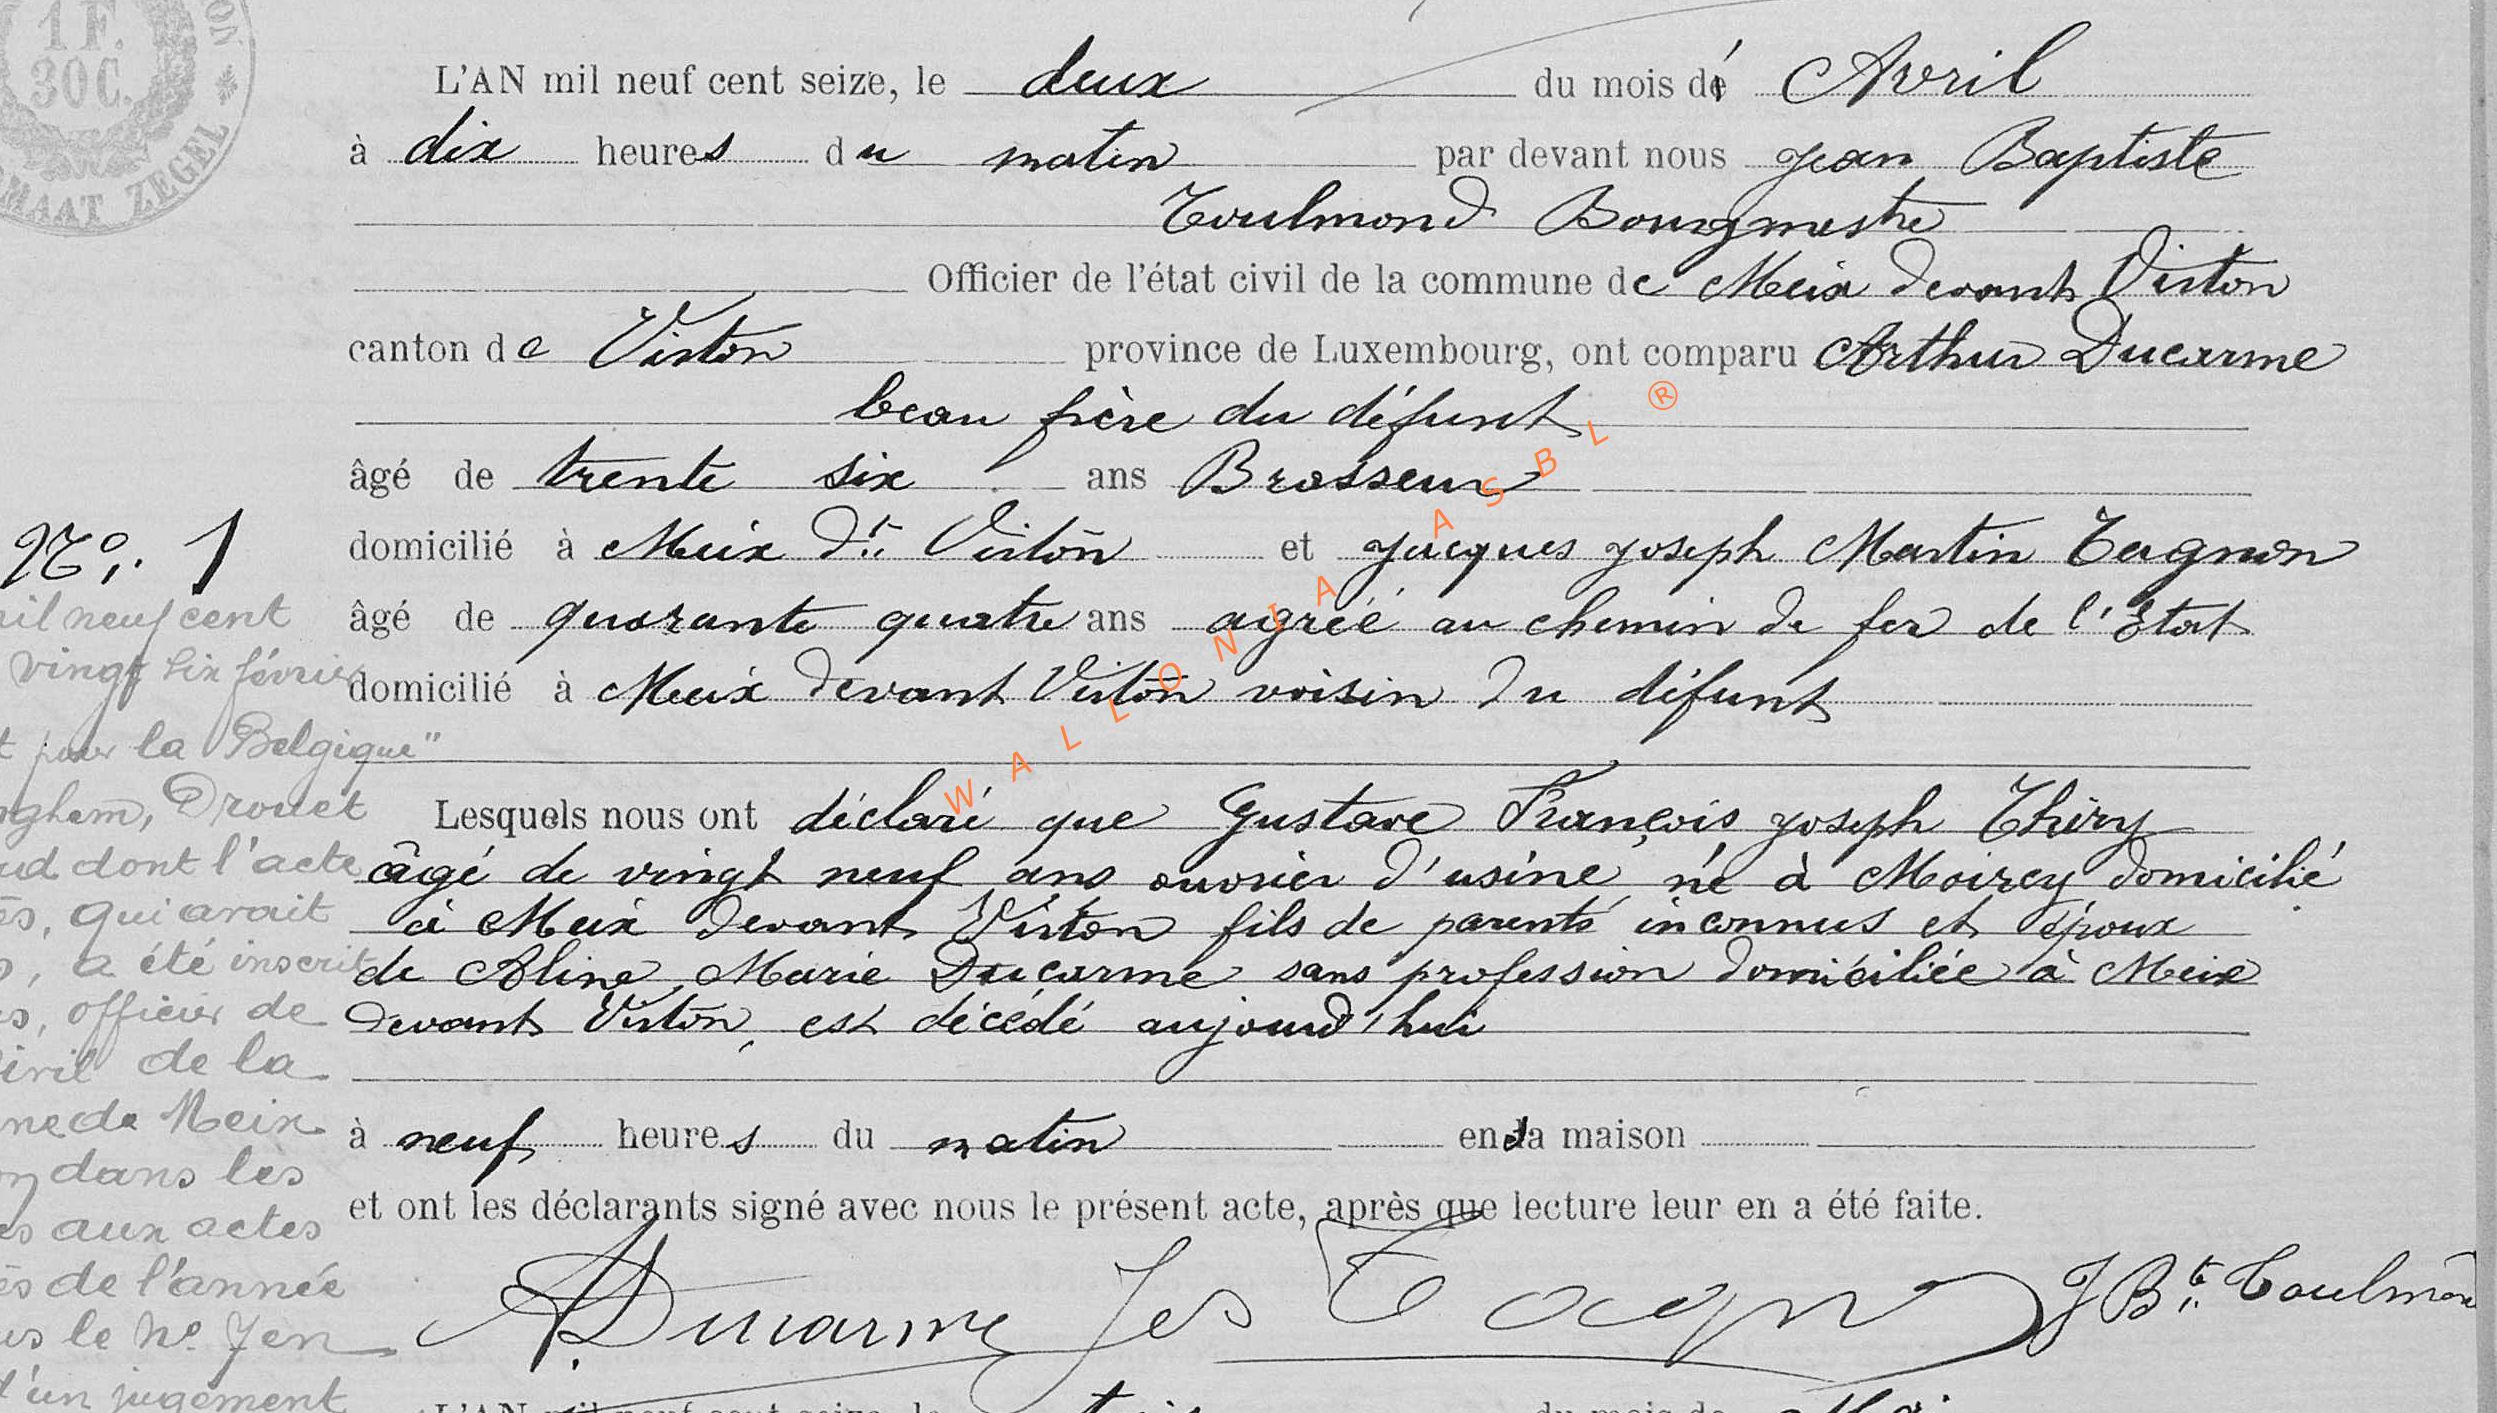 1 F.
30C.
MAAT ZEGEL
L'AN mil neuf cent seize, le deux du mois d' Avril
à dix heures du matin par devant nous Jean Baptiste
Toulmond Bourgmestre
Officier de l'état civil de la commune de Meix devant Virton
canton de Virton province de Luxembourg, ont comparu Arthur Ducarme
beau frère du défunt
âgé de trente six ans Brasseur
domicilié à Meix dt. Virton et Jacques Joseph Martin Tagnon
âgé de quarante quatre ans agréé au chemin de fer de l'Etat
domicilié à Meix devant Virton voisin du défunt
Lesquels nous ont déclaré que Gustave François Joseph Thiry
âgé de vingt neuf ans ouvrier d'usine, né à Moircy domicilié
à Meix devant Virton fils de parents inconnus et époux
de Aline Marie Ducarme sans profession domiciliée à Meix
devant Virton, est décédé aujourd'hui
à neuf heures du matin en sa maison
et ont les déclarants signé avec nous le présent acte, après que lecture leur en a été faite.
A. Ducarme Jes Tagnon J Bte. Toulmond
No. 1
mil neuf cent
vingt six février
t pour la Belgique"
nghem, Drouet
ud dont l'acte
ès, qui avait
, a été inscrit
s, officier de
civil de la
ne de Meix
on dans les
es aux actes
ès de l'année
us le No. 7 en
d'un jugement
L'AN mil neuf cent seize, le trois du mois de Mai
WALLONIA ASBL ®